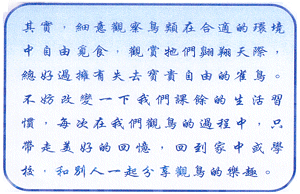 其實，細意觀察鳥類在合適的環境
中自由覓食，觀賞牠們翱翔天際，
總好過擁有失去寶貴自由的雀鳥。
不妨改變一下我們課餘的生活習
慣，每次在我們觀鳥的過程中，只
帶走美好的回憶，回到家中或學
校，和別人一起分享觀鳥的樂趣。